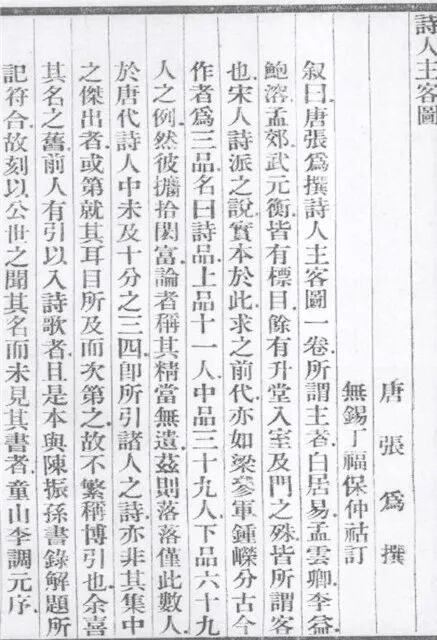 詩人主客圖
唐張爲撰
無錫丁福保仲祜訂
叙曰唐張爲撰詩人主客圖一卷所謂主者白居易孟雲卿李益
鮑溶孟郊武元衡皆有標目餘有升堂入室及門之殊皆所謂客
也宋人詩派之說實本於此求之前代亦如梁參軍鍾嶸分古今
作者爲三品名曰詩品上品十一人中品三十九人下品六十九
人之例然彼摭拾閎富論者稱其精當無遺茲則落落僅此數人
於唐代詩人中未及十分之三四卽所引諸人之詩亦非其集中
之傑出者或第就其耳目所及而次第之故不繁稱博引也余喜
其名之舊前人有引以入詩歌者且是本與陳振孫書錄解題所
記符合故刻以公世之聞其名而未見其書者童山李調元序